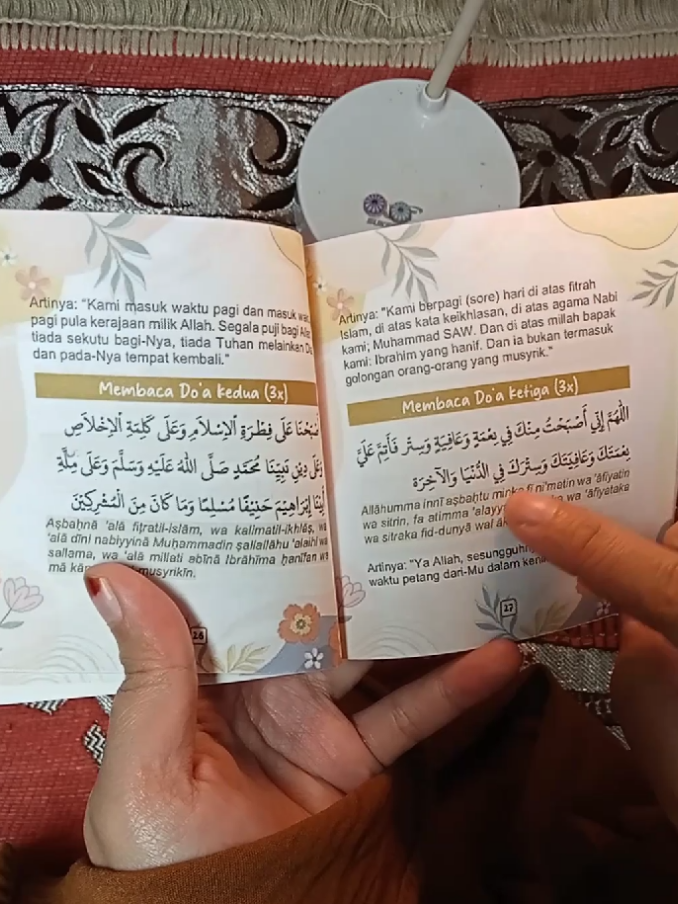 Artinya: "Kami masuk waktu pagi dan masuk
pagi pula kerajaan milik Allah. Segala puji bagi
tiada sekutu bagi-Nya, tiada Tuhan melainkan
dan pada-Nya tempat kembali."
Membaca Do'a kedua (3x)
عَلَى فِطْرَةِ الْإِسْلَامِ وَعَلَى كَلِمَةِ الْإِخْلَاصِ
وَعَلَى دِيْنِ نَبِيِّنَا مُحَمَّدٍ صَلَّى اللهُ عَلَيْهِ وَسَلَّمَ وَعَلَى مِلَّةِ
أَبِيْنَا إِبْرَاهِيْمَ حَنِيْفًا مُسْلِمًا وَمَا كَانَ مِنَ الْمُشْرِكِيْنَ
Aṣbaḥnā 'alā fiṭratil-islām, wa kalimatil-ikhlāṣ,
'alā dīni nabiyyinā Muḥammadin ṣallallāhu 'alaihi
sallama, wa 'alā millati abīnā Ibrāhīma ḥanīfan
mā musyrikīn.
26
Artinya: "Kami berpagi (sore) hari di atas fitrah
Islam, di atas kata keikhlasan, di atas agama Nabi
kami; Muhammad SAW. Dan di atas millah bapak
kami: Ibrahim yang hanif. Dan ia bukan termasuk
golongan orang-orang yang musyrik."
Membaca Do'a ketiga (3x)
اللَّهُمَّ إِنِّي أَصْبَحْتُ مِنْكَ فِي نِعْمَةٍ وَعَافِيَةٍ وَسِتْرٍ فَأَتِمَّ عَلَيَّ
نِعْمَتَكَ وَعَافِيَتَكَ وَسِتْرَكَ فِي الدُّنْيَا وَالْآخِرَةِ
Allāhumma innī aṣbaḥtu minka fī ni'metin wa 'āfiyatin
wa sitrin, fa atimma 'alayya wa 'āfiyataka
wa sitraka fid-dunyā wal
Artinya: "Ya Allah,
waktu petang dari-Mu dalam
27